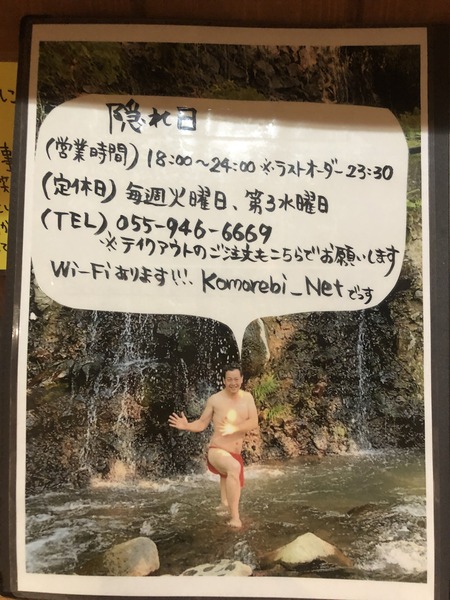 隠れ日
(営業時間) 18:00～24:00 ※ラストオーダー23:30
(定休日) 毎週火曜日、第3水曜日
(TEL) 055-946-6669
※テイクアウトのご注文もこちらでお願いします
Wi-Fiあります!!! Komorebi_Netでっす